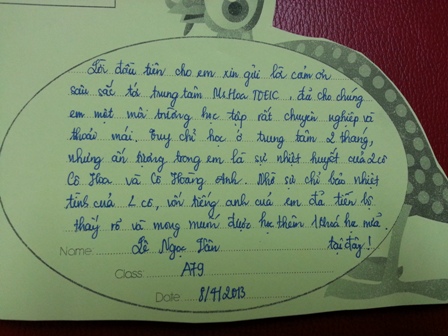 Lời đầu tiên cho em xin gửi lời cảm ơn
sâu sắc tới trung tâm Ms Hoa TOEIC, đã cho chúng
em một môi trường học tập rất chuyên nghiệp và
thoải mái. Tuy chỉ học ở trung tâm 2 tháng,
nhưng ấn tượng trong em là sự nhiệt huyết của 2 cô
Cô Hoa và Cô Hoàng Anh. Nhờ sự chỉ bảo nhiệt
tình của 2 cô, vốn tiếng anh của em đã tiến bộ
thấy rõ và mong muốn được học thêm 1 khoá hè nữa
tại đây!
Name: Lê Ngọc Vân
Class: A79
Date: 8/4/2013